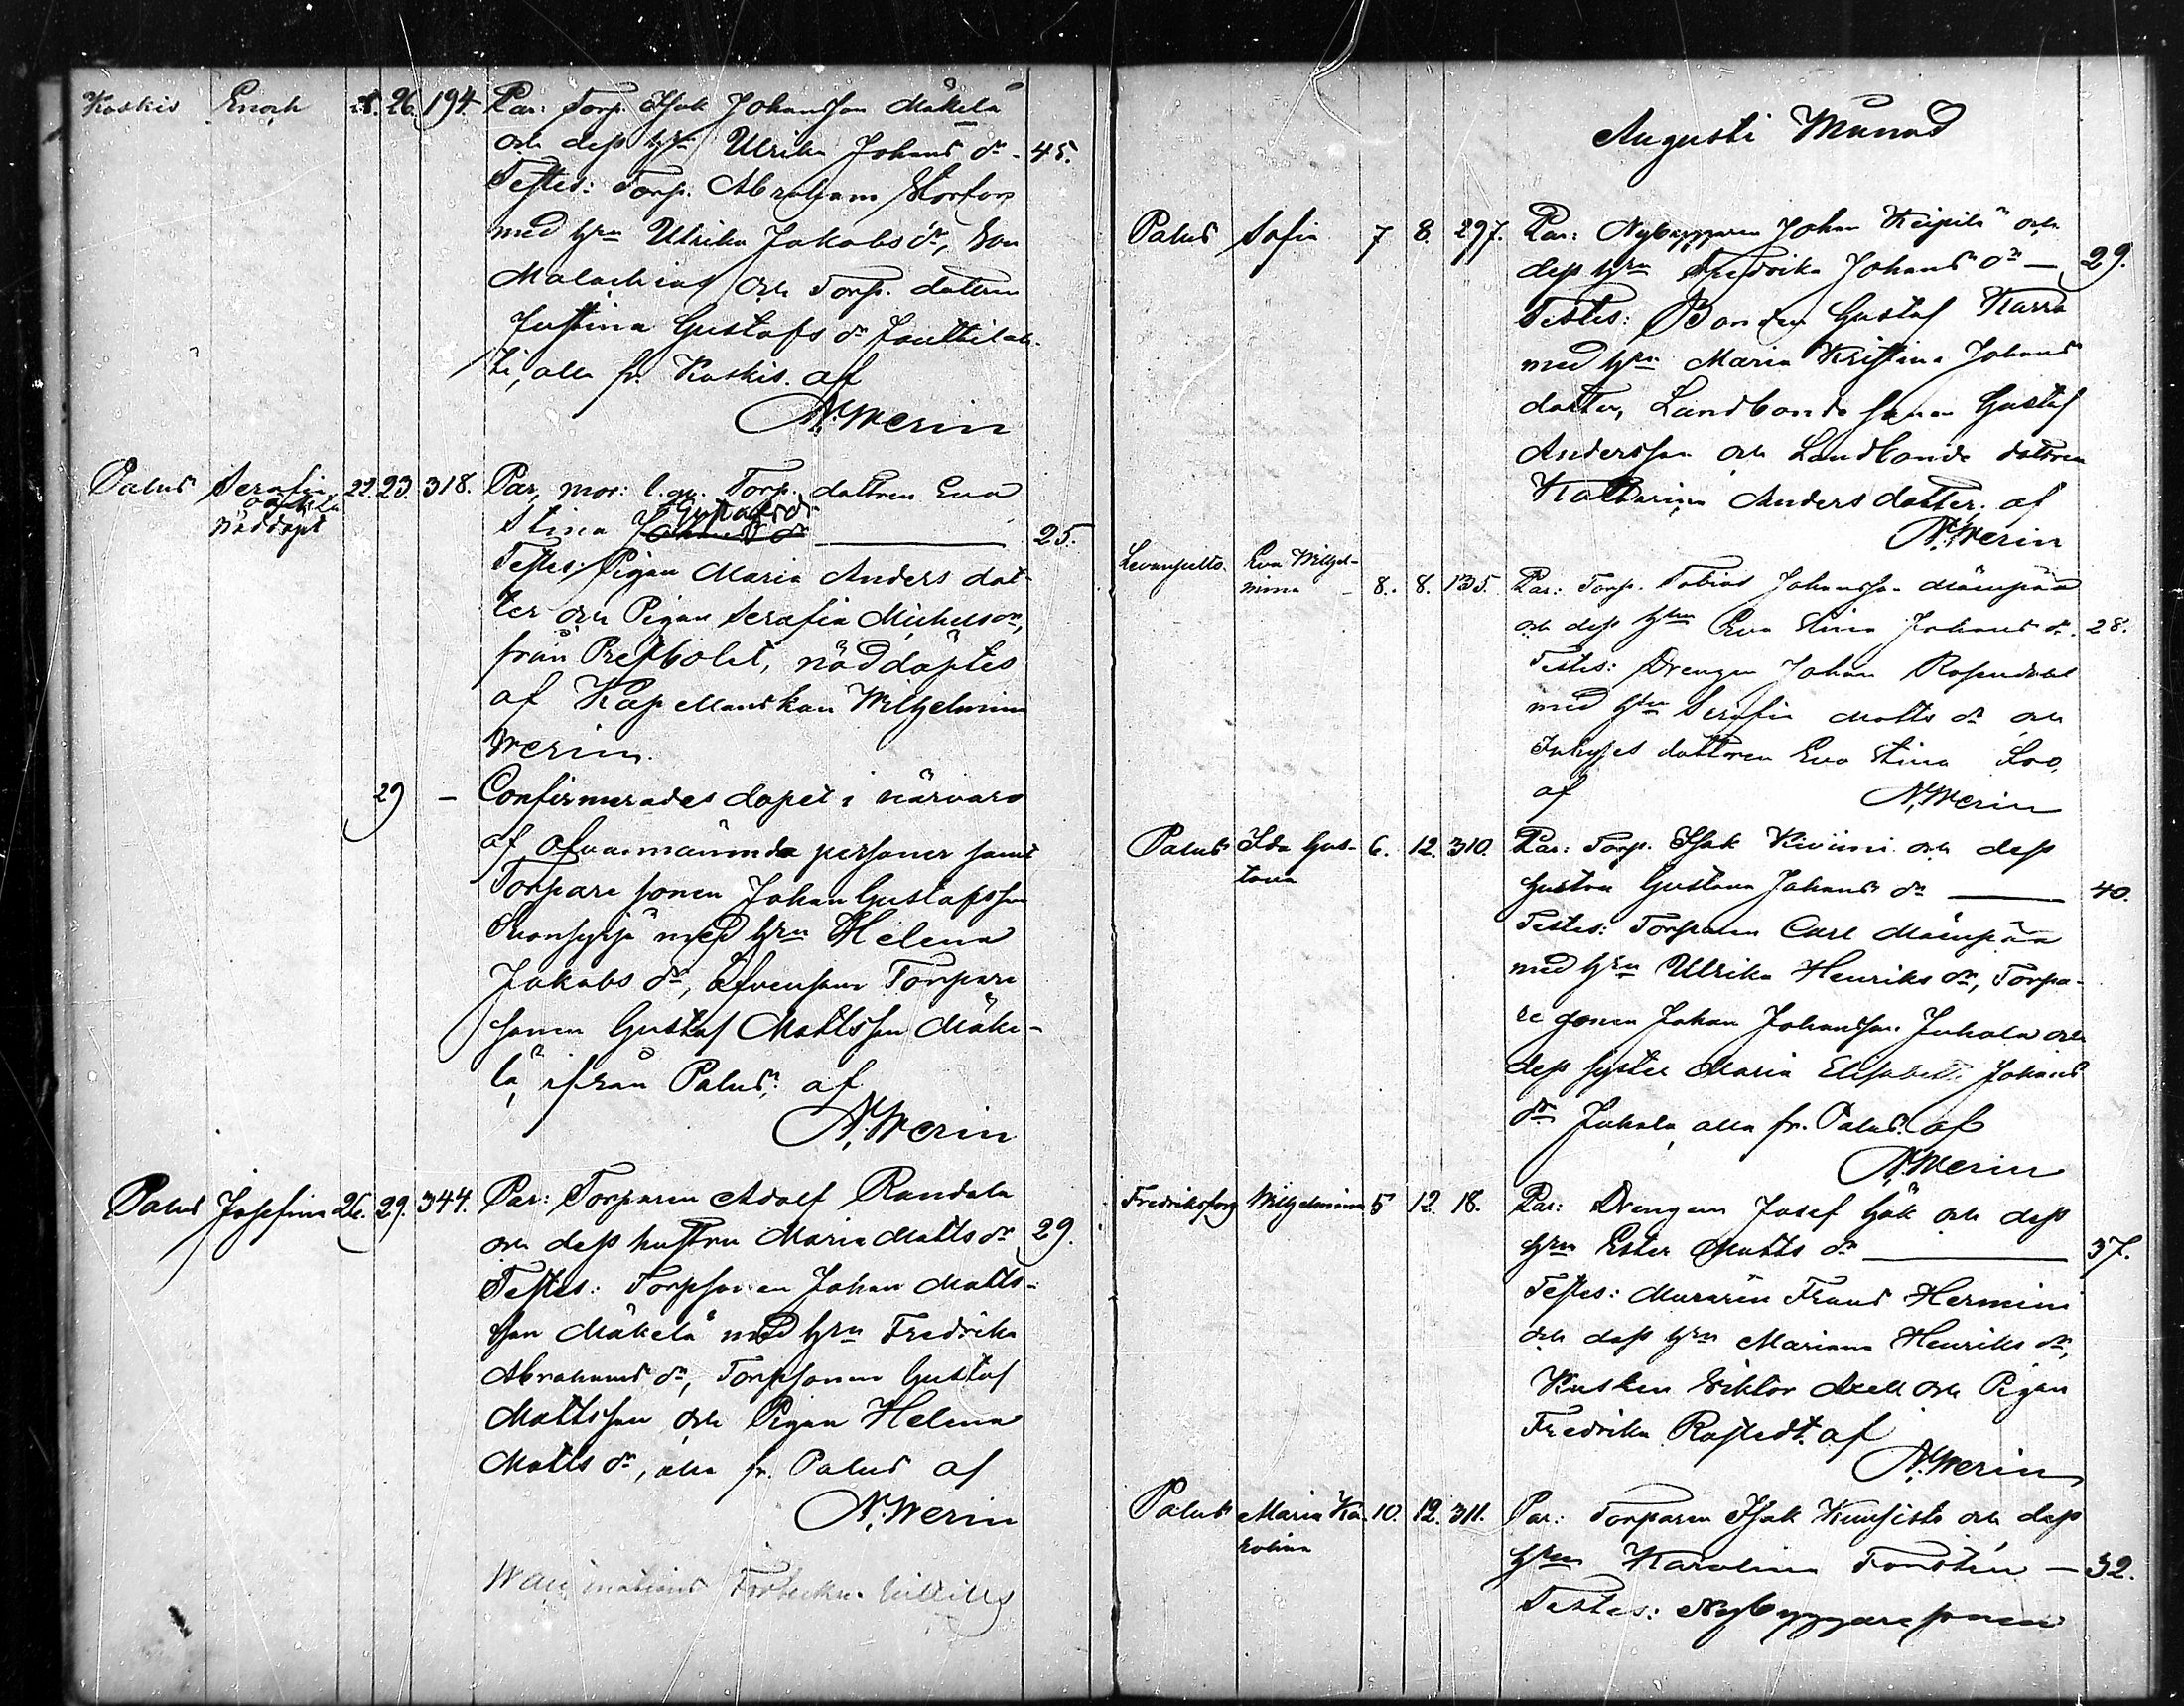 Koskis Enoch 25. 26. 194. Par: Torp. Isak Johansson Mäkelä
och dess h:ru Ulrika Johans dr - 45.
Testes: Torp. Abraham Storfors
med h:ru Ulrika Jakobs dr, Son
Malachias och Torp. dottren
Justina Gustafs dr
ti, alla fr. Koskis. af
N. Werin
Palus Serafia 22. 23. 318. Par, mor: l. qv. Torp. dottren Eva
oäkta
nöddöpt
Stina Gustafs dr 25.
Testes: Pigan Maria Anders dot-
ter och Pigan Serafia Michels dr,
från Prestbolet, nöddöptes
af Kapellanskan Wilhelmina
Werin.
29 - Confirmerades dopet i närvaro
af ofvannämnda personer samt
Torpare sonen Johan Gustafsson
med h:ru Helena
Jakobs dr, äfvensom Torpare
sonen Gustaf Mattsson Mäke-
lä, ifrån Palus: af
N. Werin
Palus Josefina 26. 29. 344. Par: Torparen Adolf Randala
och dess hustru Maria Matts dr 29.
Testes: Torpsonen Johan Matts-
son Mäkelä med h:ru Fredrika
Abrahams dr, Torpsonen Gustaf
Mattsson och Pigan Helena
Matts dr, alla fr. Palus af
N. Werin
Augusti Månad
Palus Sofia 7 8. 297. Par: Nybyggaren Johan Keipilä och
dess h:ru Fredrika Johans dr - 29.
Testes: Bonden Gustaf Karra
med h:ru Maria Kristina Johans
dotter, Landbonde sonen Gustaf
Andersson och Landbonde dottren
Katharina Anders dotter. af
N. Werin
Levanpelto. Eva Wilhel-
mina - 8. 8. 135. Par: Torp. Tobias Johansson Mäenpää
och dess h:ru Eva Stina Johans dr. 28.
Testes: Drengen Johan Rosendal
med h:ru Serafia Matts dr och
Inhyses dottren Eva Stina Loo,
af N. Werin
Palus Ida Gus-
tava 6. 12. 310. Par: Torp. Isak Kiviini och dess
hustru Gustava Johans dr 40.
Testes: Torparen Carl Mäenpää
med h:ru Ulrika Henriks dr, Torpa-
re sonen Johan Johansson Juhala och
dess syster Maria Elisabeth Johans
dr Juhala, alla fr. Palus. af
N. Werin
Fredriksfors Wilhelmina 5 12. 18. Par: Drengen Josef Hök och dess
h:ru Ester Matts dr 37.
Testes: Muraren Frans Hermini
och dess h:ru Mariana Henriks dr,
Kusken Viktor Axell och Pigan
Fredrika Rostedt. af
N. Werin
Palus Maria Ka-
rolina 10. 12. 311. Par: Torparen Isak Kuusisto och dess
h:ru Karolina Forstén - 32.
Testes: Nybyggare sonen